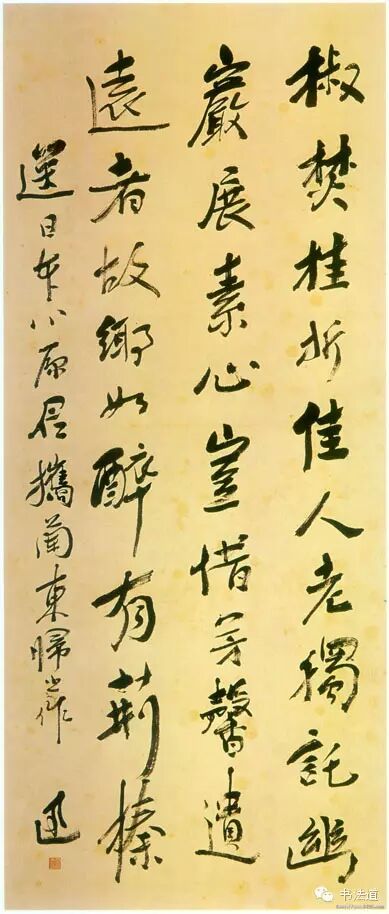 椒焚桂折佳人老獨託幽
巖展素心豈惜芳馨遺
遠者故鄉如醉有荊榛
送日本小原君攜蘭東歸
迅
书法道